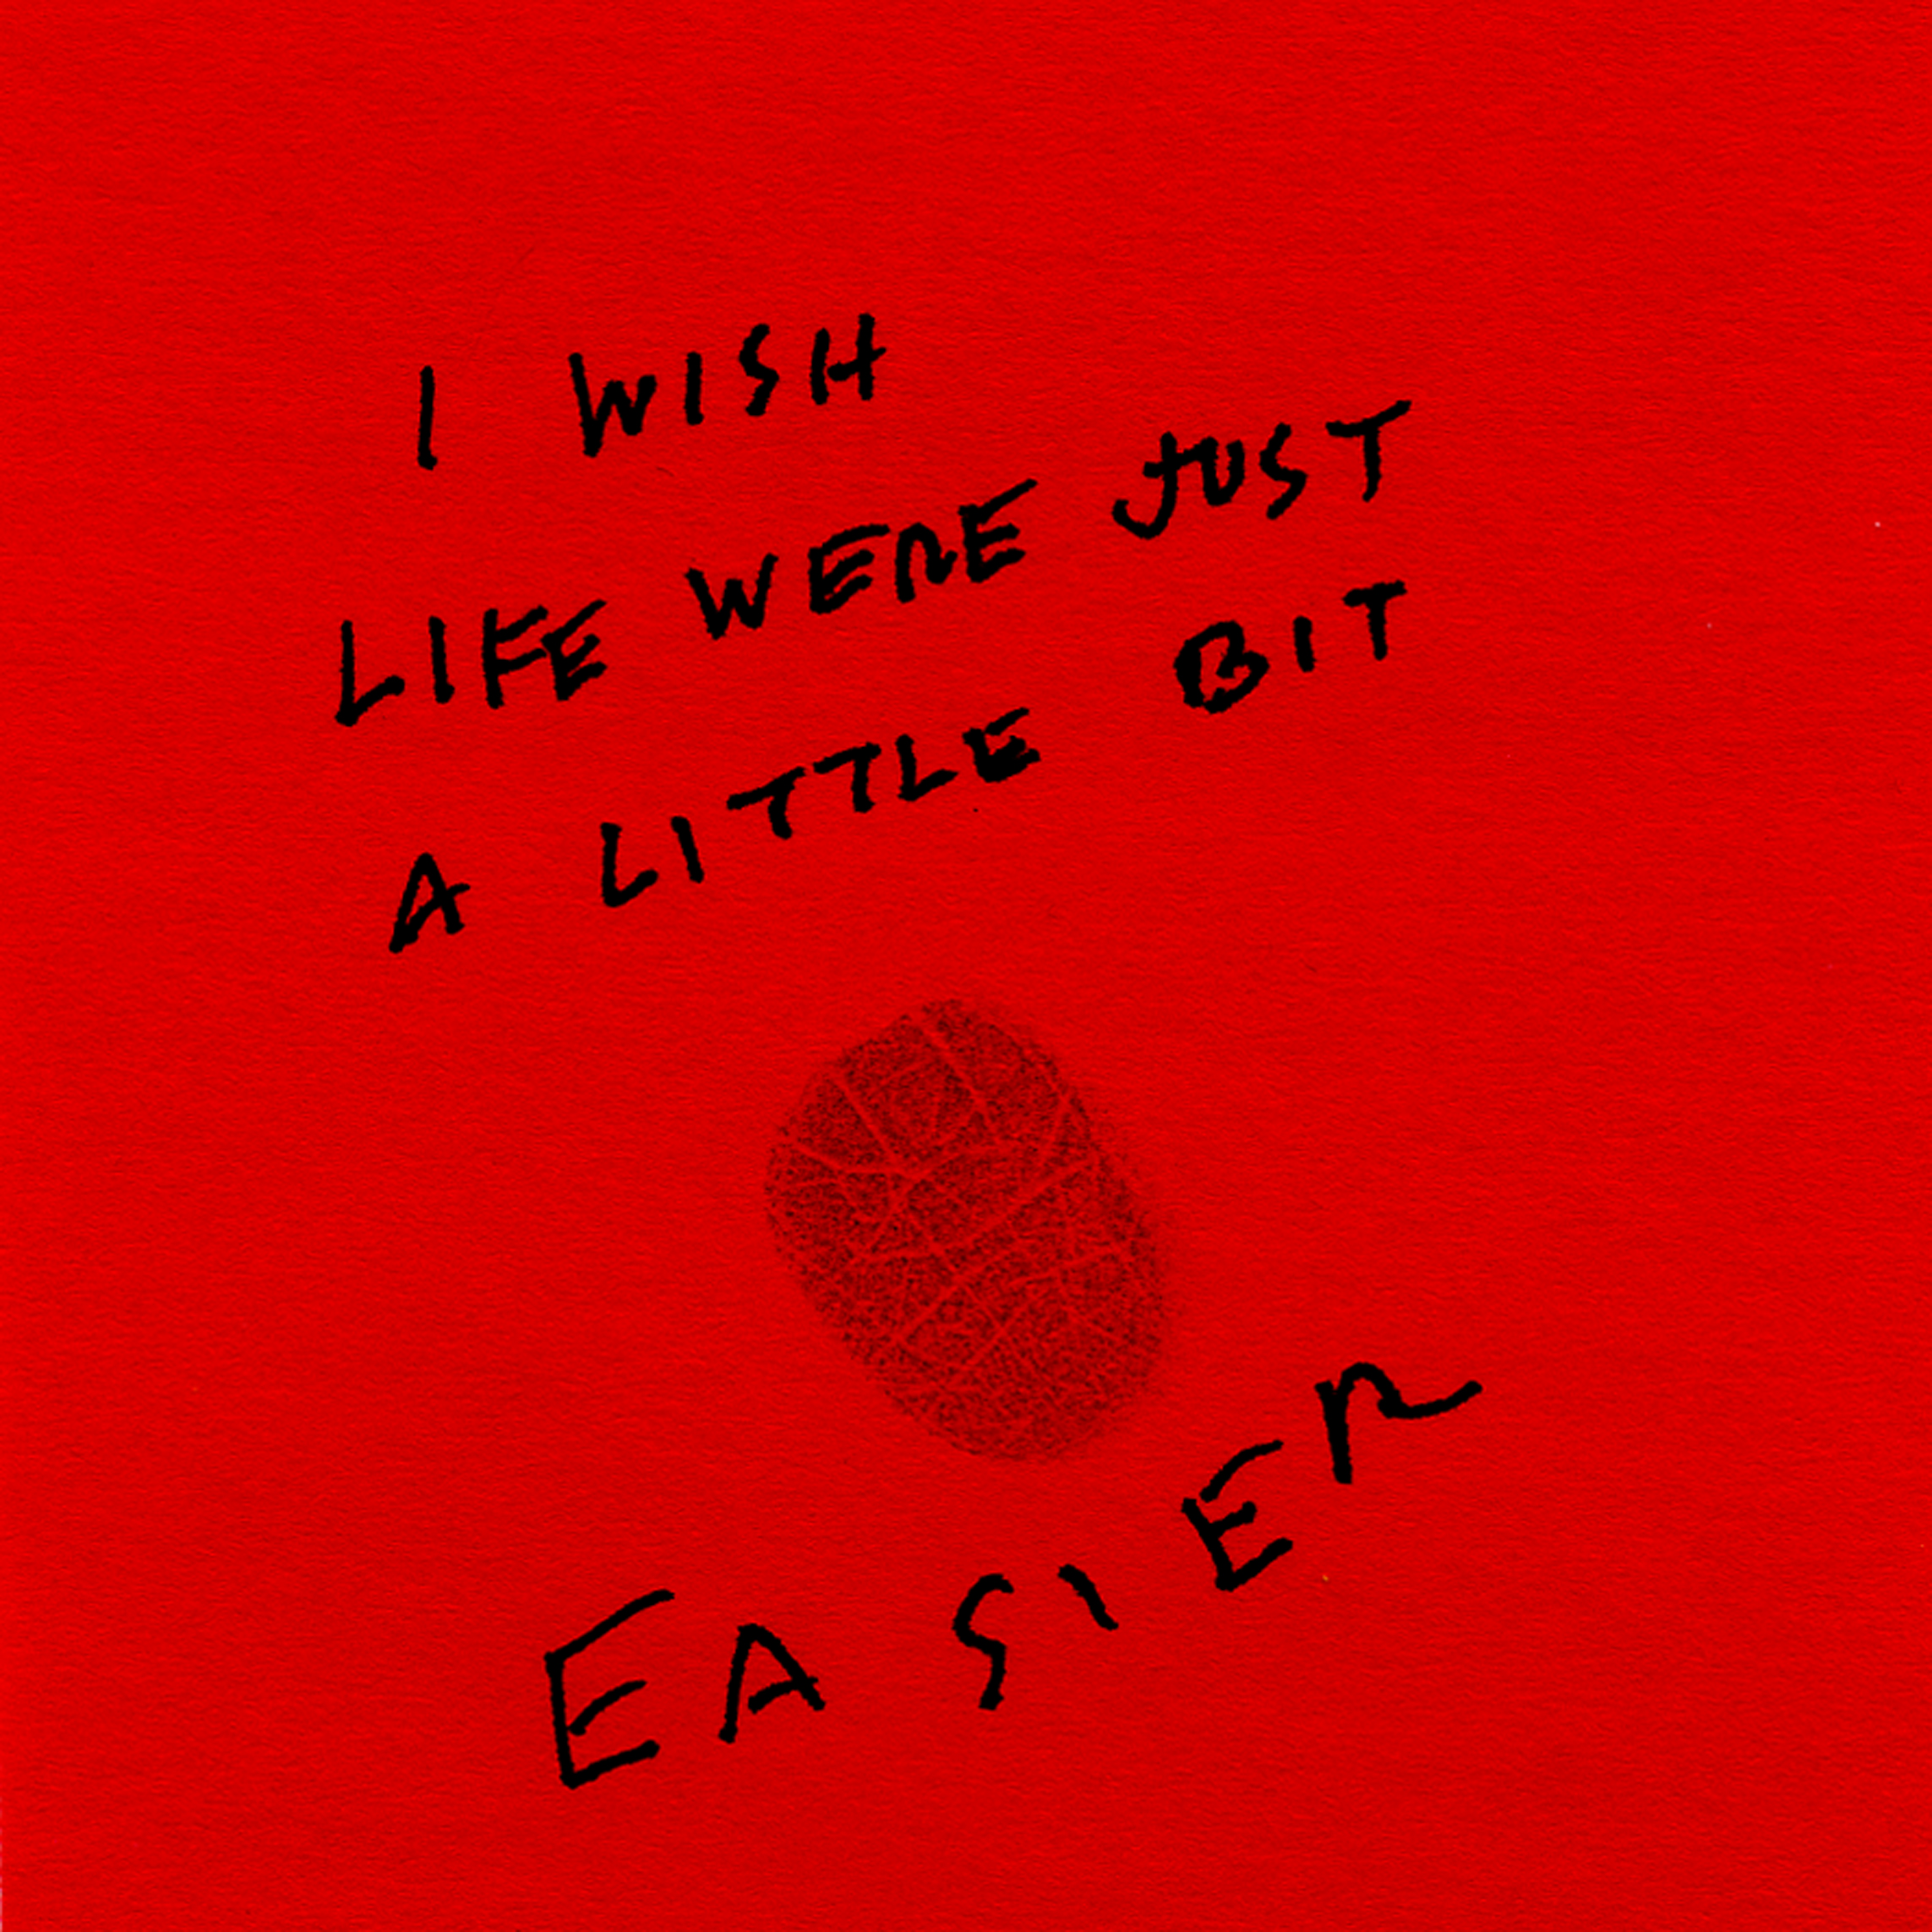 I WISH
LIFE WERE JUST
A LITTLE BIT
EASIER